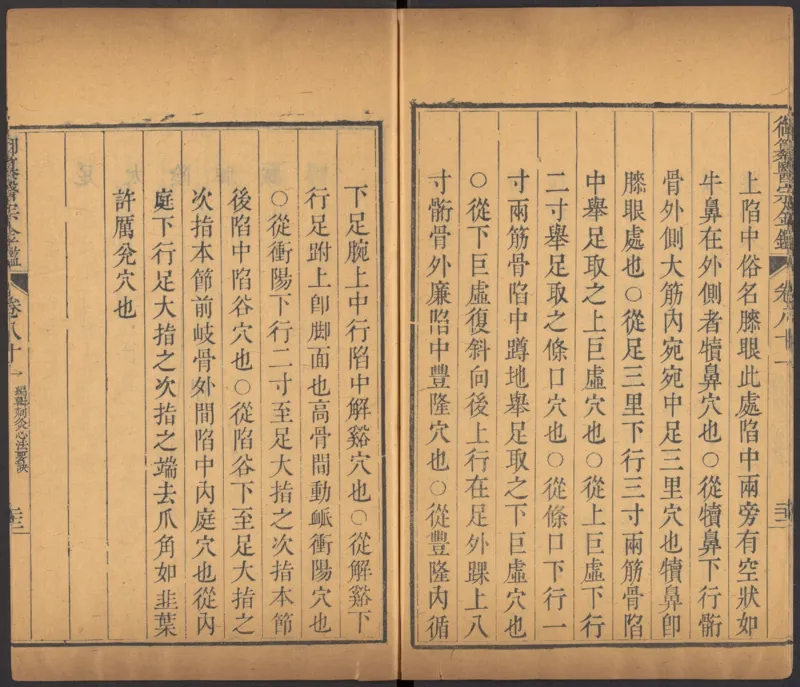 御纂醫宗金鑑
卷八十一
上陷中俗名膝眼此處陷中兩旁有空狀如
牛鼻在外側者犢鼻穴也○從犢鼻下行䯒
骨外側大筋內宛宛中足三里穴也犢鼻卽
膝眼處也○從足三里下行三寸兩筋骨陷
中舉足取之上巨虛穴也○從上巨虛下行
二寸舉足取之條口穴也○從條口下行一
寸兩筋骨陷中蹲地舉足取之下巨虛穴也
○從下巨虛復斜向後上行在足外踝上八
寸䯒骨外廉陷中豐隆穴也○從豐隆內循
下足腕上中行陷中解谿穴也○從解谿下
行足跗上卽脚面也高骨間動衇衝陽穴也
○從衝陽下行二寸至足大指之次指本節
後陷中陷谷穴也○從陷谷下至足大指之
次指本節前岐骨外間陷中內庭穴也從內
庭下行足大指之次指之端去爪角如韭葉
許厲兌穴也
御纂醫宗金鑑
卷八十一
編輯刺灸心法要訣